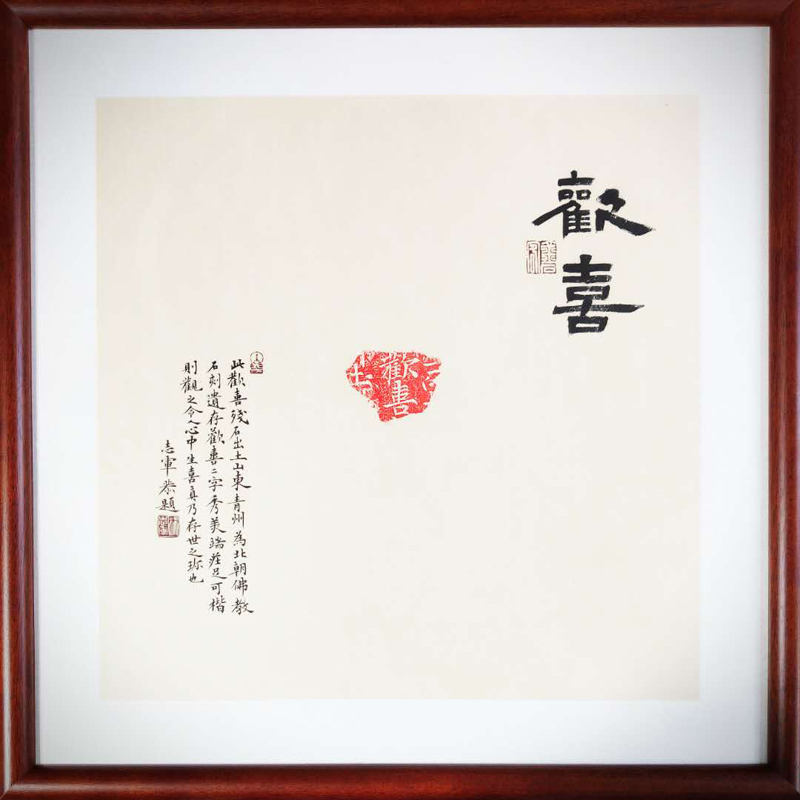 歡
喜
歡喜
此歡喜殘石出土山東青州為北朝佛教
石刻遺存歡喜二字秀美端莊足可楷
則觀之令人心中生喜真乃存世之珎也
志軍恭題